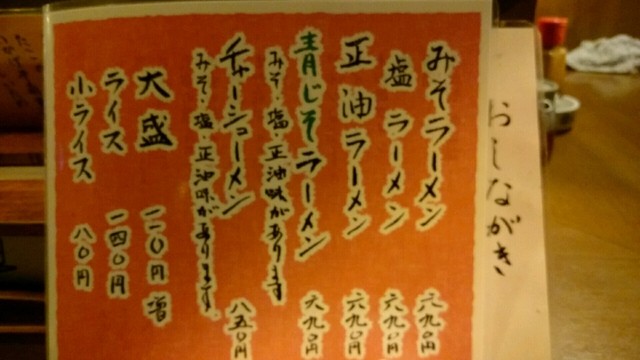 おしながき
みそラーメン 六九〇円
塩ラーメン 六九〇円
正油ラーメン 六九〇円
青じそラーメン 六九〇円
みそ・塩・正油味があります
チャーシューメン 八五〇円
みそ・塩・正油味があります。
大盛 一一〇円増
ライス 一四〇円
小ライス 八〇円